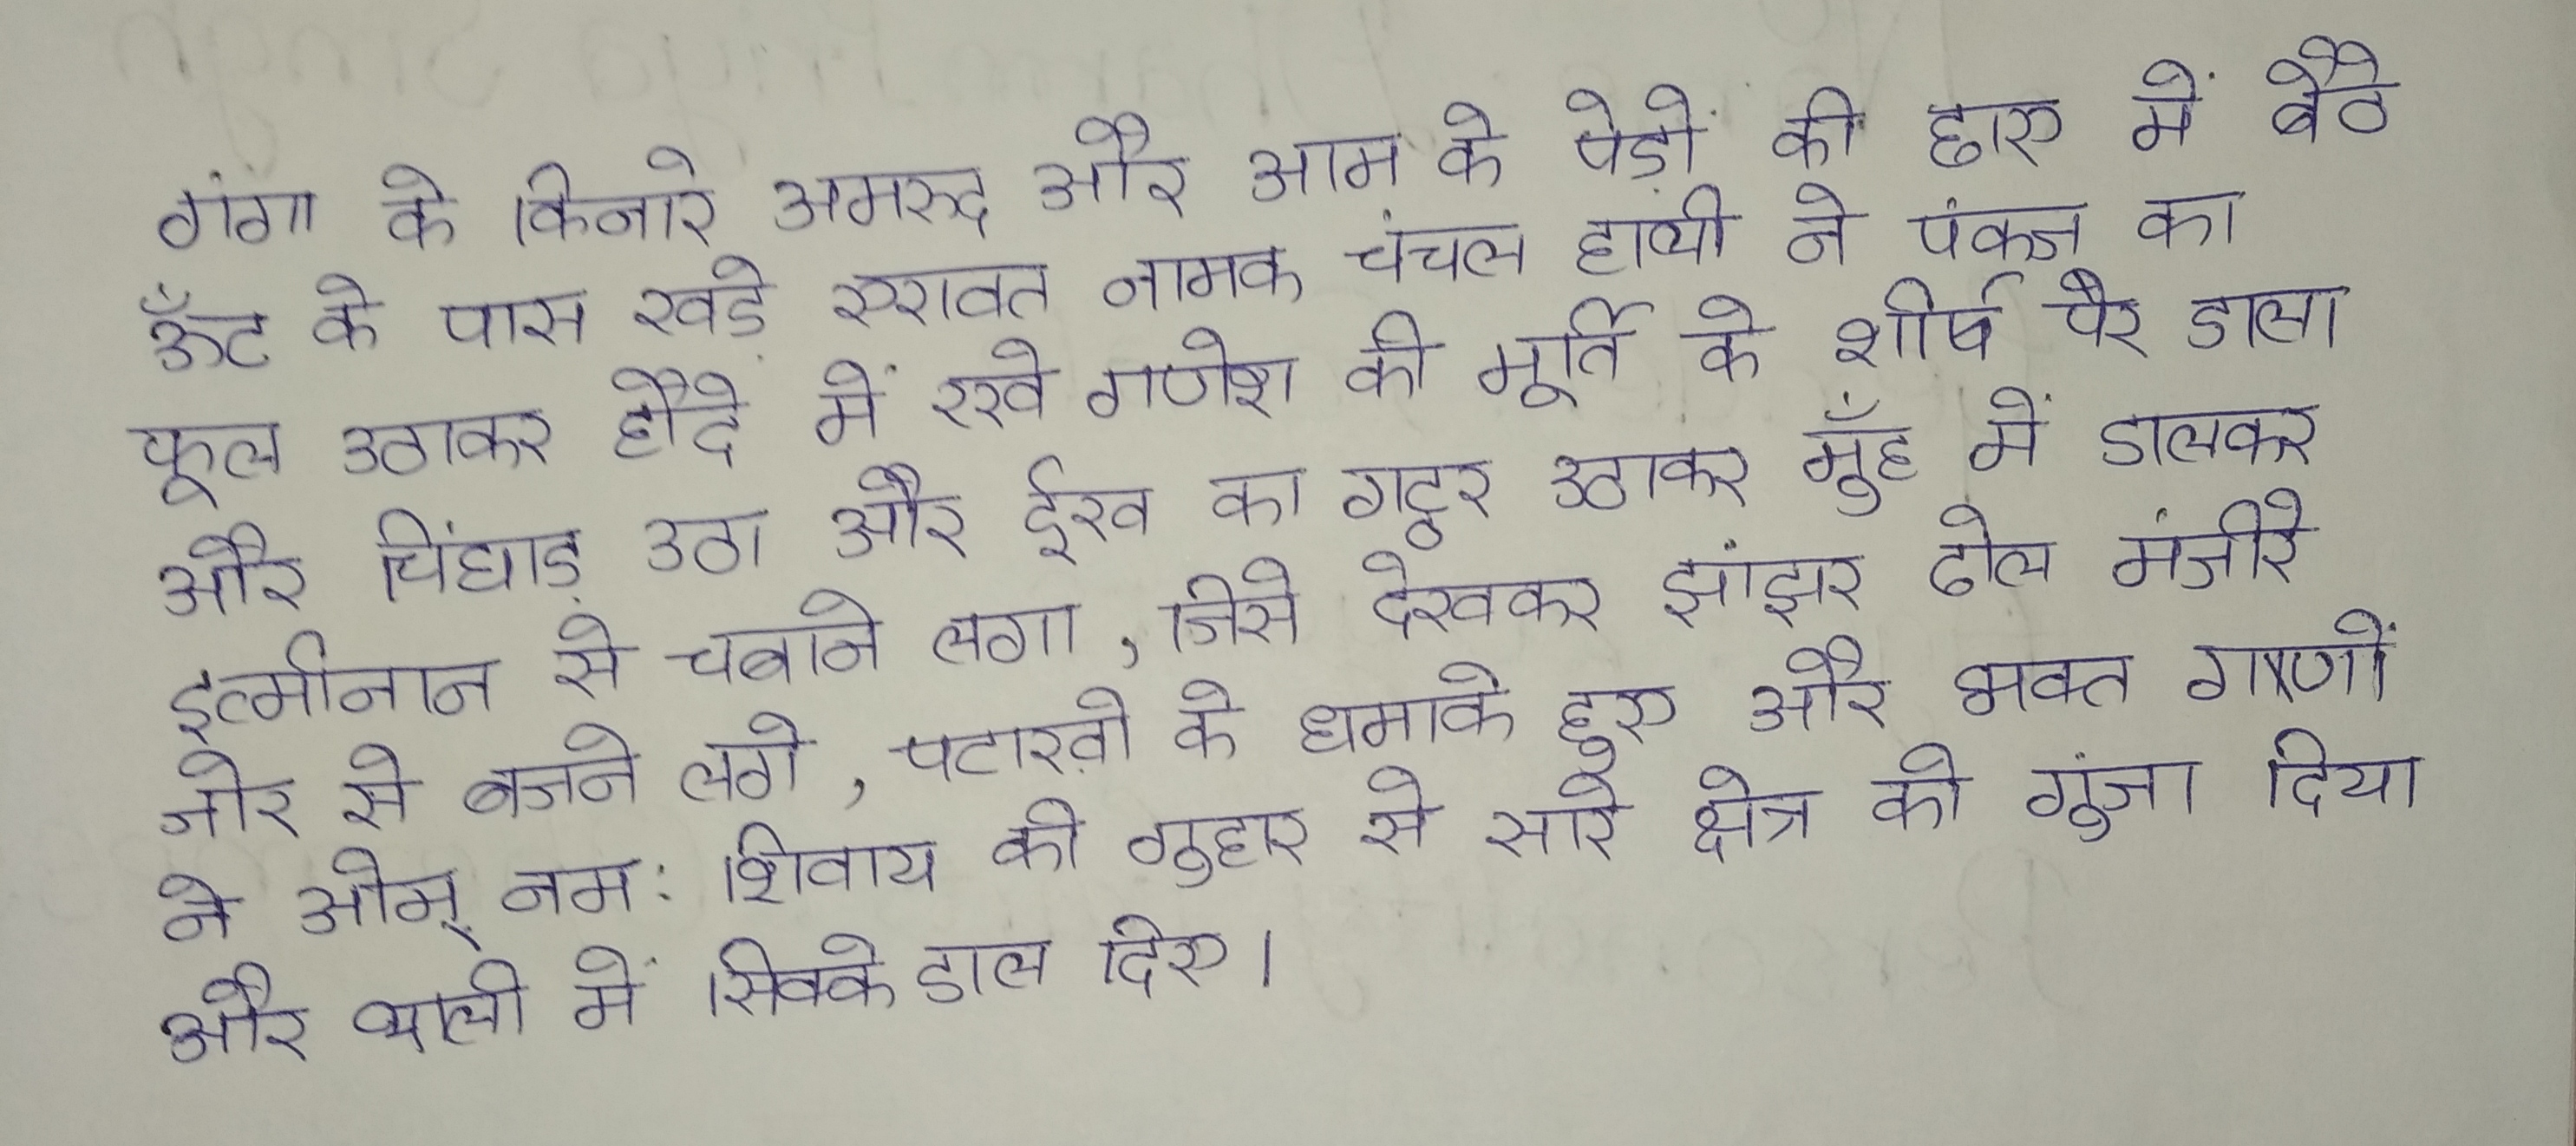 गंगा के किनारे अमरूद और आम के पेड़ों की छाए में बैठे
ऊँट के पास खड़े एरावत नामक चंचल हाथी ने पंकज का
फूल उठाकर हौदे में रखे गणेश की मूर्ति के शीर्ष पैर डाला
और चिंघाड़ उठा और ईख का गट्ठर उठाकर मुँह में डालकर
इत्मीनान से चबाने लगा, जिसे देखकर झांझर ढोल मंजीरे
जोर से बजने लगे, पटाख़ो के धमाके हुए और भक्त गणों
ने ओम् नम: शिवाय की गुहार से सारे क्षेत्र को गुंजा दिया
और थाली में सिक्के डाल दिए।